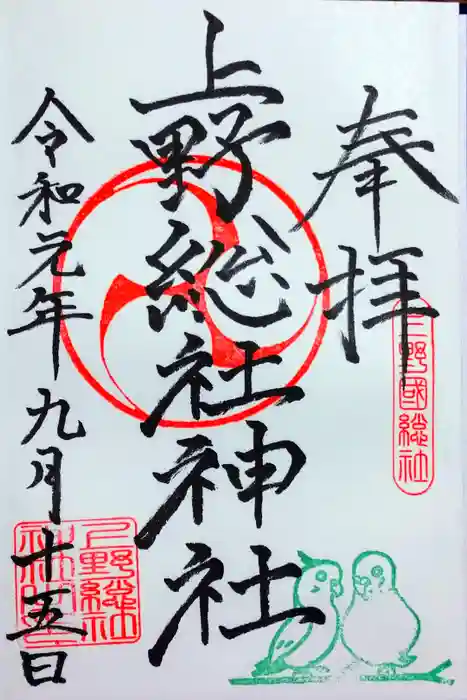 奉拝
上野國総社
上野総社神社
令和元年九月十五日
上野総社神社